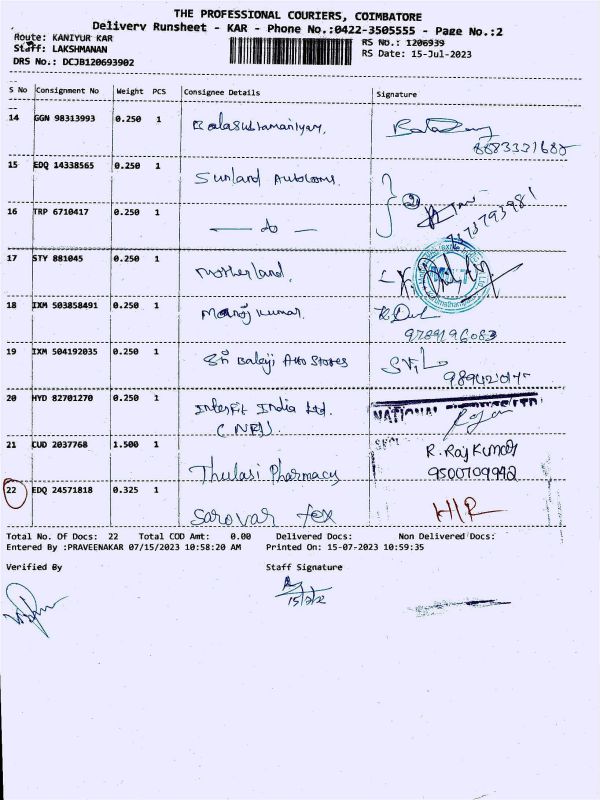 THE PROFESSIONAL COURIERS, COIMBATORE
Delivery Runsheet - KAR - Phone No.:0422-3505555 - Page No.:2
Route: KANIYUR KAR
RS No.: 1206939
Staff: LAKSHMANAN
RS Date: 15-Jul-2023
DRS No.: DCJB120693902
S No Consignment No Weight PCS Consignee Details Signature
14 GGN 98313993 0.250 1 Balasubramaniyam,
15 EDQ 14338565 0.250 1 Sunland Autolooms.
16 TRP 6710417 0.250 1 — do —
17 STY 881045 0.250 1 Motherland,
18 IXM 503858491 0.250 1 Manoj Kumar.
9789196083
19 IXM 504192035 0.250 1 Sri Balaji Auto Stores
20 HYD 82701270 0.250 1 Interfit India Ltd. NATIONAL
21 CUD 2037768 1.500 1 Thulasi Pharmacy R. Raj Kumar
9500709942
22 EDQ 24571818 0.325 1 Sarovar Tex
Total No. Of Docs: 22 Total COD Amt: 0.00 Delivered Docs: Non Delivered Docs:
Entered By :PRAVEENAKAR 07/15/2023 10:58:20 AM Printed On: 15-07-2023 10:59:35
Verified By Staff Signature